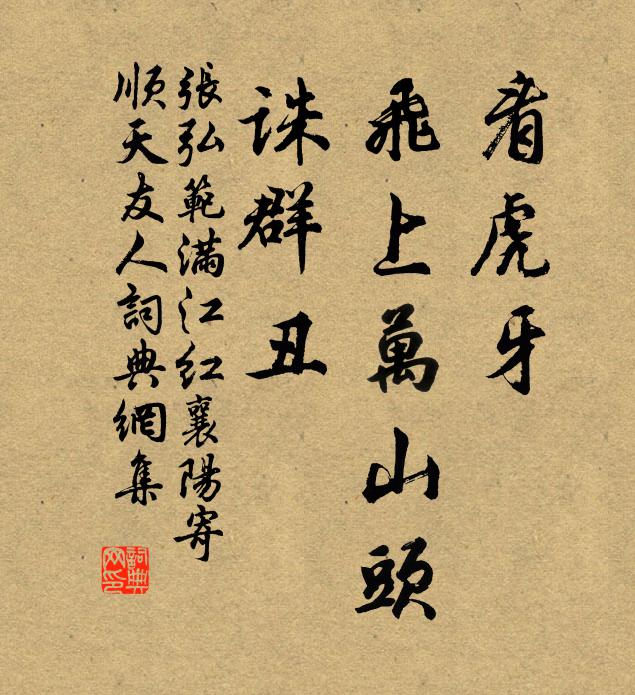 看虎牙
飛上萬山頭
誅群丑
張弘範滿江紅襄陽寄
順天友人詞典網集
詞典
网印